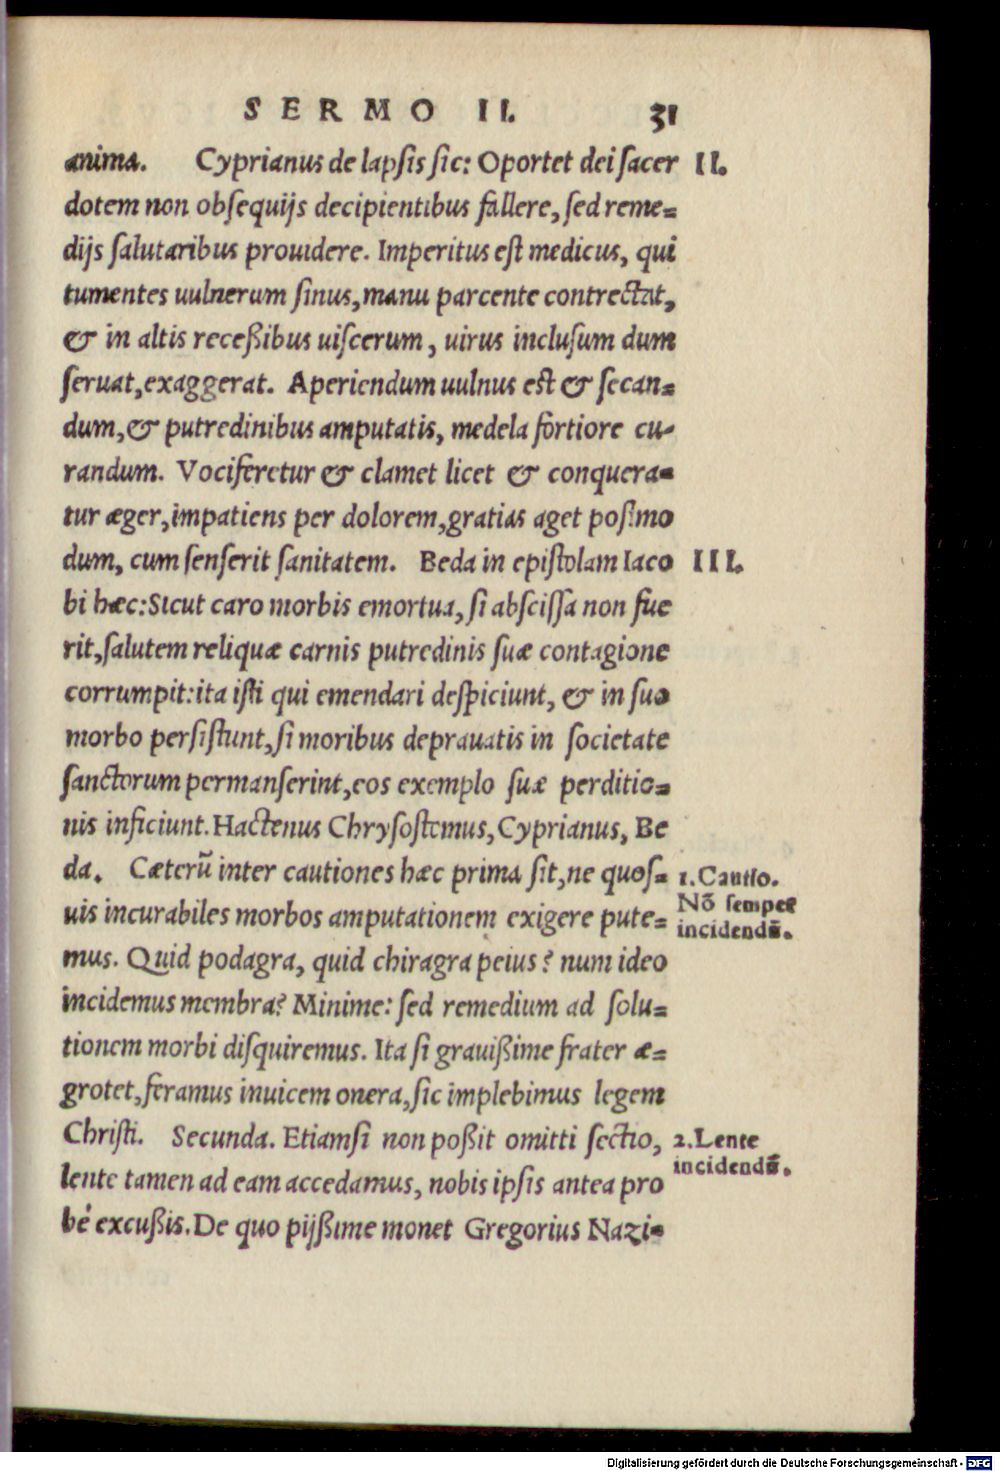 SERMO II. 31
anima. Cyprianus de lapsis sic: Oportet dei sacer II.
dotem non obsequijs decipientibus fallere, sed reme=
dijs salutaribus prouidere. Imperitus est medicus, qui
tumentes uulnerum sinus, manu parcente contrectat,
& in altis receßibus uiscerum, uirus inclusum dum
seruat, exaggerat. Aperiendum uulnus est & secan=
dum, & putredinibus amputatis, medela fortiore cu-
randum. Vociferetur & clamet licet & conquera=
tur æger, impatiens per dolorem, gratias aget postmo
dum, cum senserit sanitatem. Beda in epistolam Iaco III.
bi hæc: Sicut caro morbis emortua, si abscissa non fue
rit, salutem reliquæ carnis putredinis suæ contagione
corrumpit: ita isti qui emendari despiciunt, & in suo
morbo persistunt, si moribus deprauatis in societate
sanctorum permanserint, eos exemplo suæ perditio=
nis inficiunt. Hactenus Chrysostomus, Cyprianus, Be
da. Cæterũ inter cautiones hæc prima sit, ne quos= 1. Cautio.
Nõ semper
uis incurabiles morbos amputationem exigere pute= incidendũ.
mus. Quid podagra, quid chiragra peius? num ideo
incidemus membra? Minime: sed remedium ad solu=
tionem morbi disquiremus. Ita si grauißime frater æ=
grotet, feramus inuicem onera, sic implebimus legem
Christi. Secunda. Etiamsi non poßit omitti sectio, 2. Lente
incidendũ.
lente tamen ad eam accedamus, nobis ipsis antea pro
bé excußis. De quo pijßime monet Gregorius Nazi=
Digitalisierung gefördert durch die Deutsche Forschungsgemeinschaft - DFG